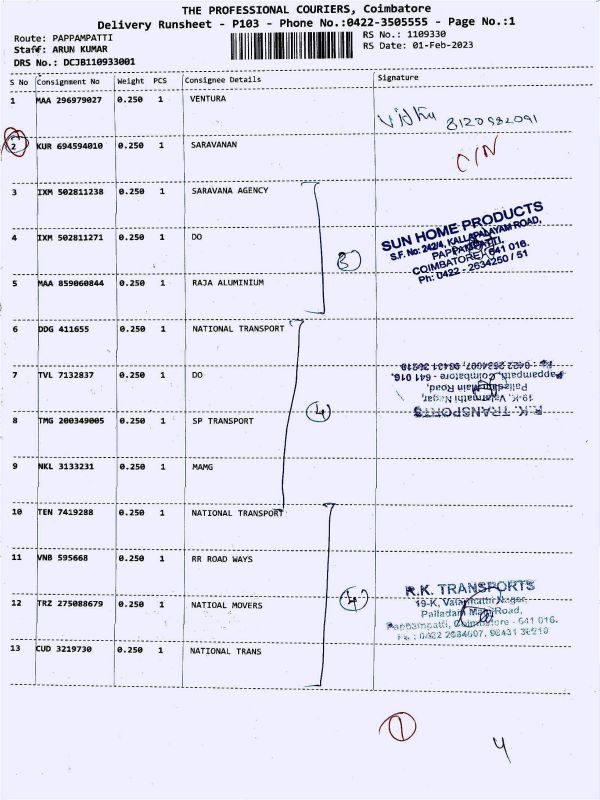 THE PROFESSIONAL COURIERS, Coimbatore
Delivery Runsheet - P103 - Phone No.:0422-3505555 - Page No.:1
Route: PAPPAMPATTI RS No.: 1109330
Staff: ARUN KUMAR RS Date: 01-Feb-2023
DRS No.: DCJB110933001
S No Consignment No Weight PCS Consignee Details Signature
1 MAA 296979027 0.250 1 VENTURA
8120582091
2 KUR 694594010 0.250 1 SARAVANAN
C/N
3 IXM 502811238 0.250 1 SARAVANA AGENCY
4 IXM 502811271 0.250 1 DO
3
SUN HOME PRODUCTS
S.F. No: 242/4, KALLAPALAYAM ROAD,
PAPPAMPATTI,
COIMBATORE - 641 016.
Ph: 0422 - 2634250 / 51
5 MAA 859060844 0.250 1 RAJA ALUMINIUM
6 DDG 411655 0.250 1 NATIONAL TRANSPORT
7 TVL 7132837 0.250 1 DO
R.K. TRANSPORTS
19-K, Valarmathi Nagar,
Palladam Main Road,
Pappampatti, Coimbatore - 641 016.
0422 2634607, 98431 36919
4
8 TMG 200349005 0.250 1 SP TRANSPORT
9 NKL 3133231 0.250 1 MAMG
10 TEN 7419288 0.250 1 NATIONAL TRANSPORT
11 VNB 595668 0.250 1 RR ROAD WAYS
4
12 TRZ 275088679 0.250 1 NATIOAL MOVERS
R.K. TRANSPORTS
19-K, Valarmathi Nagar,
Palladam Main Road,
Pappampatti, Coimbatore - 641 016.
0422 2634607, 98431 36919
13 CUD 3219730 0.250 1 NATIONAL TRANS
1
4